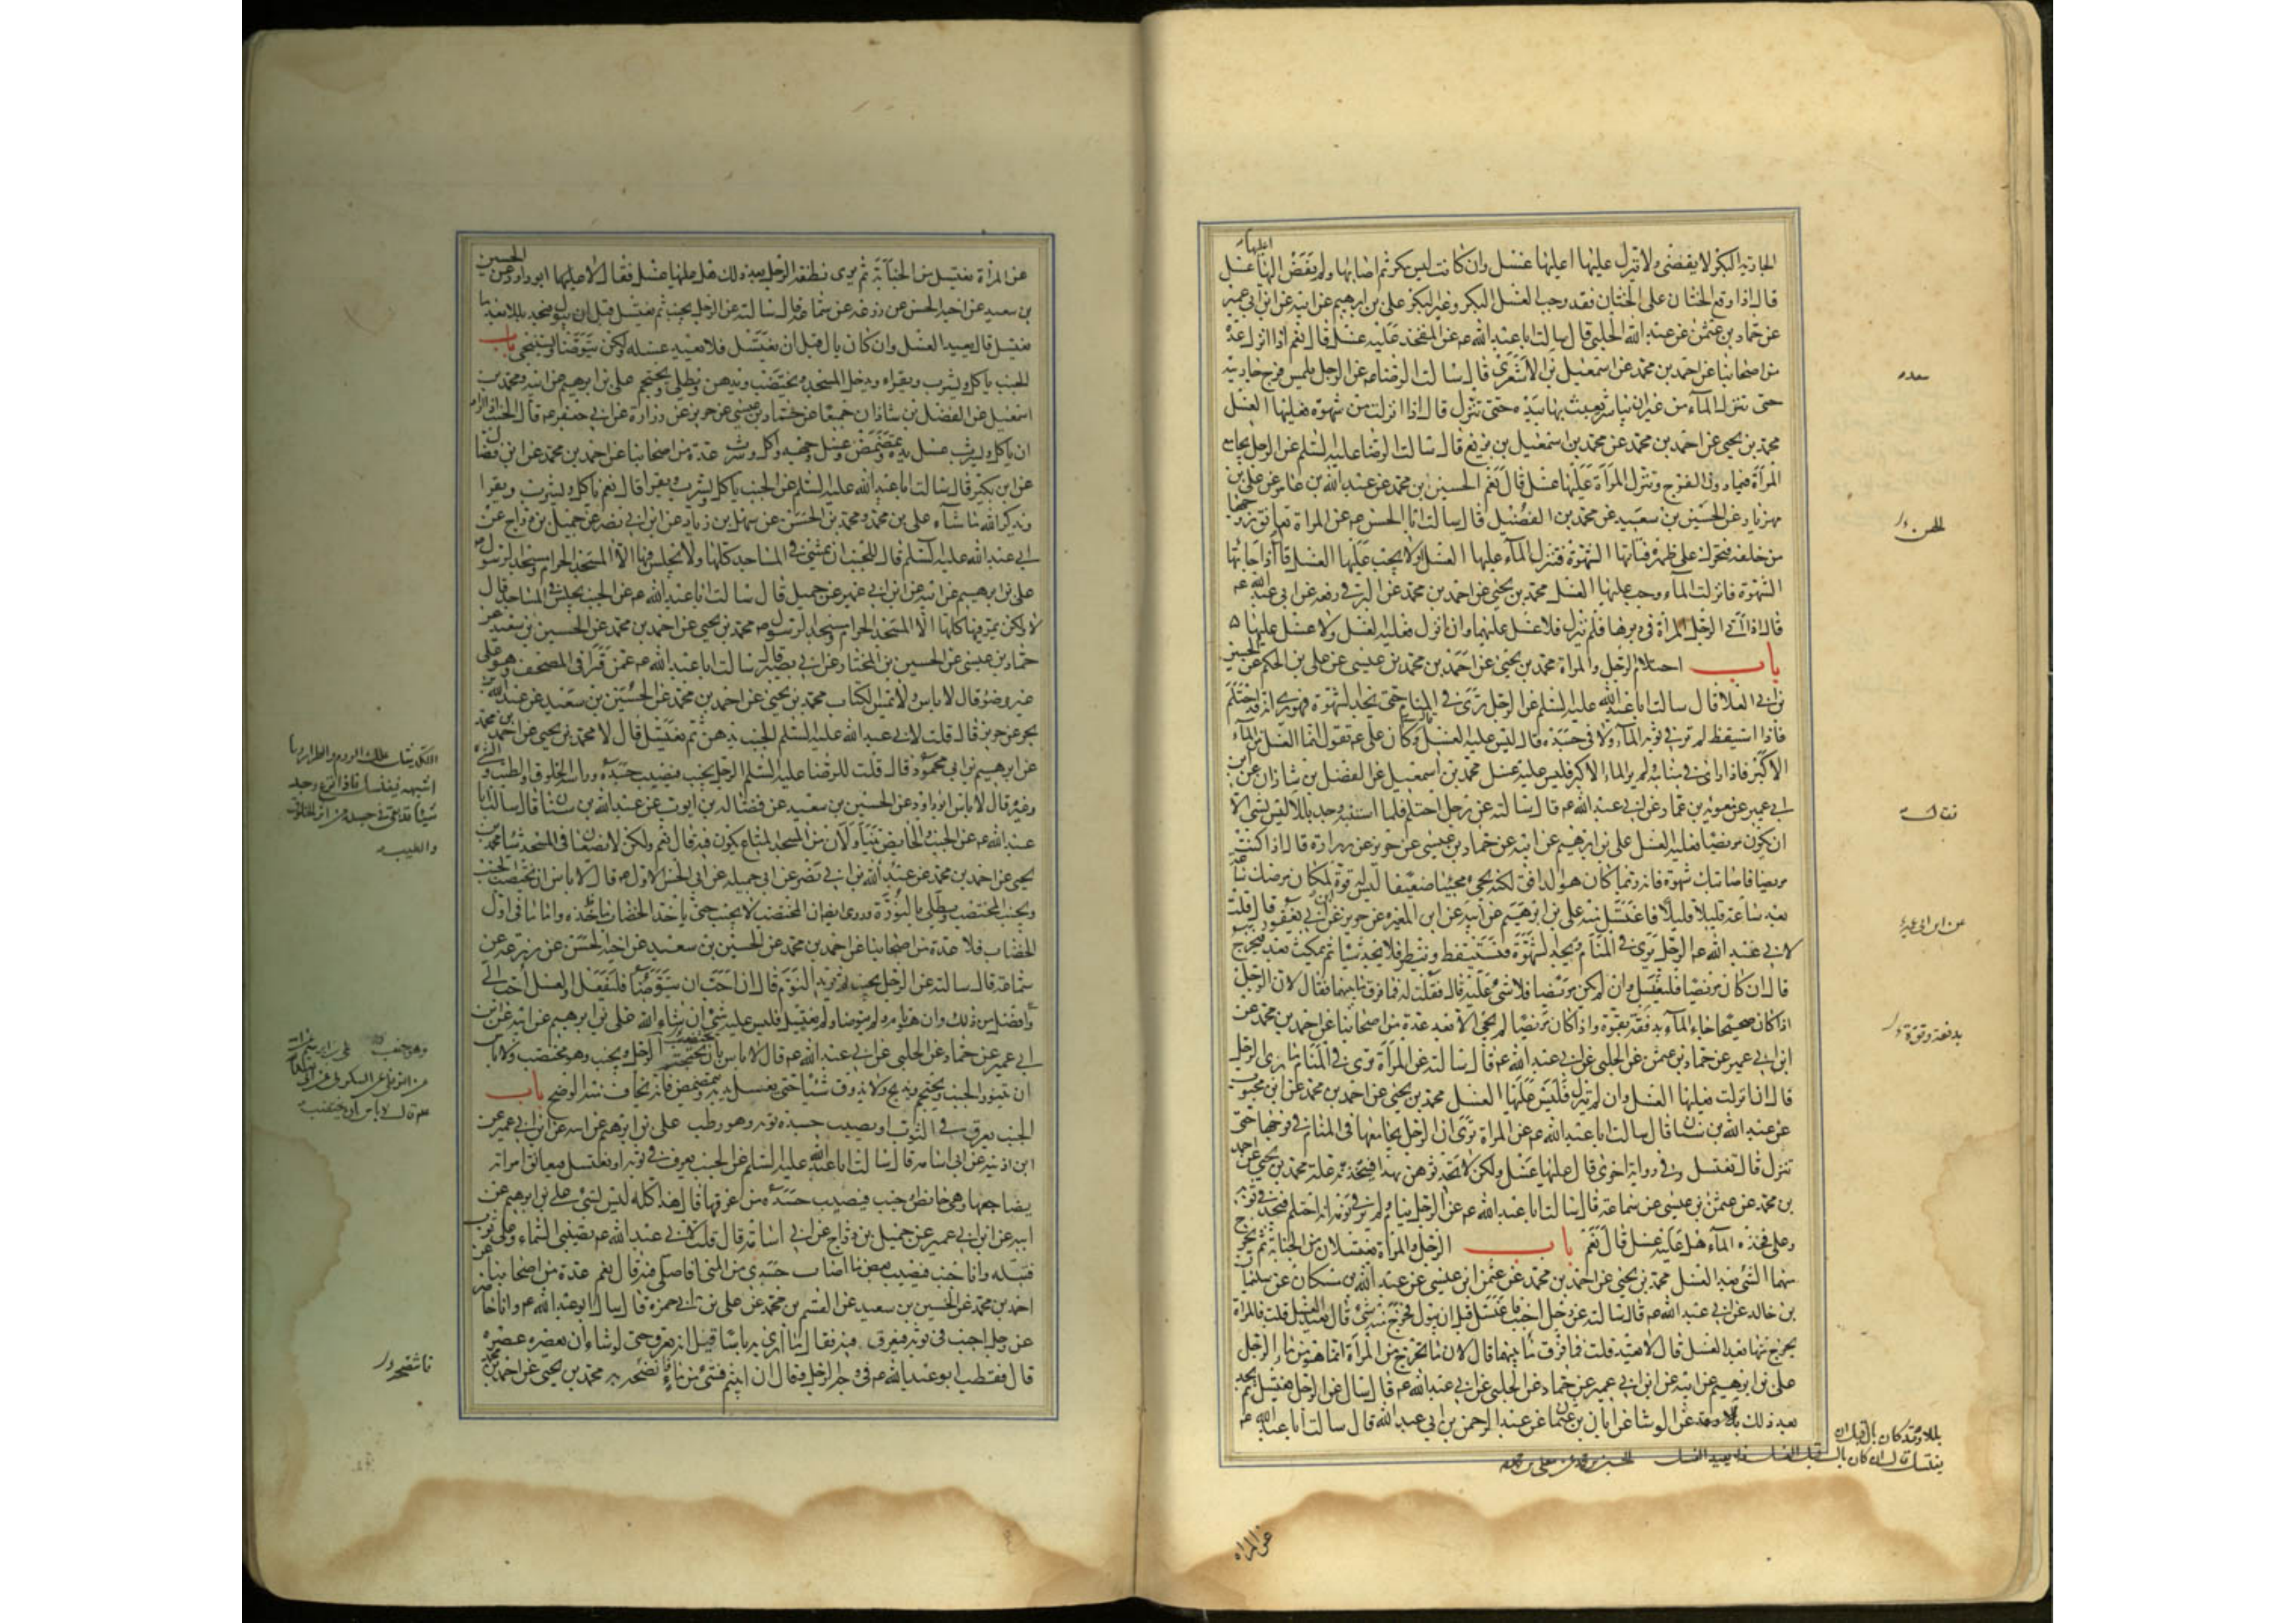 الجارية البكر لا يفضي ولا تنزل عليها اعليها غسل وان كانت ليس ببكر ثم اصابها ولم يفض اليها اعليها غسل
قال اذا وقع الختان على الختان فقد وجب الغسل البكر وغير البكر علي بن ابرهيم عن ابيه عن ابن ابي عمير
عن حماد بن عثمن عن عبيد الله الحلبي قال سالت ابا عبد الله عه عن المفخذ عليه غسل قال نعم اذا انزل عدة
من اصحابنا عن احمد بن محمد عن اسمعيل بن الاشعري قال سالت الرضا عه عن الرجل يلمس فرج جاريته
حتى تنزل الماء من غير ان يباشر يعبث بها بيده حتى تنزل قال اذا انزلت من شهوة فعليها الغسل
محمد بن يحيى عن احمد بن محمد عن محمد بن اسمعيل بن بزيع قال سالت الرضا عليه السلم عن الرجل يجامع
المراة فيما دون الفرج وتنزل المراة عليها غسل قال نعم الحسين بن محمد عن عبد الله بن عامر عن علي بن
مهزيار عن الحسين بن سعيد عن محمد بن الفضيل قال سالت ابا الحسن عه عن المراة تعانق زوجها
من خلفه فتحرك على ظهره فتاتيها الشهوة فتنزل الماء عليها الغسل او لا يجب عليها الغسل قال اذا جائتها
الشهوة فانزلت الماء وجب عليها الغسل محمد بن يحيى عن احمد بن محمد عن البرقي رفعه عن ابي عبد الله عه
قال اذا اتى الرجل المراة في دبرها فلم ينزل فلا غسل عليهما وان انزل فعليه الغسل ولا غسل عليها
باب احتلام الرجل والمراة محمد بن يحيى عن احمد بن محمد بن عيسى عن علي بن الحكم عن الحسين
بن ابي العلا قال سالت ابا عبد الله عليه السلم عن الرجل يرى في المنام حتى يجد الشهوة فهو يرى انه قد احتلم
فاذا استيقظ لم ير في ثوبه الماء ولا في جسده قال ليس عليه الغسل وكان علي عه يقول انما الغسل من الماء
الاكبر فاذا راى في منامه ولم ير الماء الاكبر فليس عليه غسل محمد بن اسمعيل عن الفضل بن شاذان عن ابن
ابي عمير عن معوية بن عمار عن ابي عبد الله عه قال سالته عن رجل احتلم فلما استنبه وجد بللا قال ليس بشي الا
ان يكون مريضا فعليه الغسل علي بن ابرهيم عن ابيه عن حماد بن عيسى عن حريز عن زرارة قال اذا كنت
مريضا فاصابتك شهوة فانه ربما كان هو الدافق لكنه يجي مجيئا ضعيفا ليس له قوة لمكان مرضك ساعة
بعد ساعة قليلا قليلا فاغتسل منه علي بن ابرهيم عن ابيه عن ابن المغيره عن حريز عن ابن ابي يعفور قال قلت
لابي عبد الله عه الرجل يرى في المنام ويجد الشهوة فيستيقظ وينظر فلا يجد شيئا ثم يمكث بعد فيخرج
قال ان كان مريضا فليغتسل وان لم يكن مريضا فلا شي عليه قال فقلت له فما فرق ما بينهما فقال لان الرجل
اذا كان صحيحا جاء الماء بدفقة بقوة واذا كان مريضا لم يجي الا بعد عدة من اصحابنا عن احمد بن محمد عن
ابن ابي عمير عن حماد بن عثمن عن الحلبي عن ابي عبد الله عه قال سالته عن المراة ترى في المنام ما يرى الرجل
قال ان انزلت فعليها الغسل وان لم تنزل فليس عليها الغسل محمد بن يحيى عن احمد بن محمد عن ابن محبوب
عن عبد الله بن سنان قال سالت ابا عبد الله عه عن المراة ترى ان الرجل يجامعها في المنام في فرجها حتى
تنزل قال تغتسل وفي رواية اخرى قال عليها غسل ولكن لا تحدثوهن بهذا فيتخذنه علة محمد بن يحيى عن احمد
بن محمد عن عثمن بن عيسى عن سماعة قال سالت ابا عبد الله عه عن الرجل ينام ولم ير في نومه انه احتلم فيجد في ثوبه
وعلى فخذه الماء هل عليه غسل قال نعم باب الرجل والمراة يغتسلان من الجنابة ثم يخرج
منهما الشي بعد الغسل محمد بن يحيى عن احمد بن محمد عن عثمن بن عيسى عن عبد الله بن مسكان عن سليمان
بن خالد عن ابي عبد الله عه قال سالته عن رجل اجنب فاغتسل قبل ان يبول فخرج منه شي قال يعيد الغسل قلت فالمراة
يخرج منها بعد الغسل قال لا تعيد قلت فما فرق ما بينهما قال لان ما يخرج من المراة انما هو من ماء الرجل
علي بن ابرهيم عن ابيه عن ابن ابي عمير عن حماد عن الحلبي عن ابي عبد الله عه قال سئل عن الرجل يغتسل ثم يجد
بعد ذلك بللا وقد عن الوشا عن ابان بن عثمان عن عبد الرحمن بن ابي عبد الله قال سالت ابا عبد الله عه
بللا وقد كان بال قبل ان
يغتسل قال ان كان بال قبل الغسل فلا يعيد الغسل الحسين بن محمد عن معلى بن محمد
عن المراة
عن المراة تغتسل من الجنابة ثم ترى نطفة الرجل بعد ذلك هل عليها غسل فقال لا عليها ابو داود عن الحسين
بن سعيد عن اخيه الحسن عن زرعه عن سماعة قال سالته عن الرجل يجنب ثم يغتسل قبل ان يبول فيجد بللا بعد ما
يغتسل قال يعيد الغسل وان كان بال قبل ان يغتسل فلا يعيد غسله ولكن يتوضا ويستنجي باب
الجنب ياكل ويشرب ويقراء ويدخل المسجد ويختضب ويدهن ويطلي ويحتجم علي بن ابرهيم عن ابيه ومحمد بن
اسمعيل عن الفضل بن شاذان جميعا عن حماد بن عيسى عن حريز عن زرارة عن ابي جعفر عه قال الجنب اذا اراد
ان ياكل ويشرب غسل يده وتمضمض وغسل وجهه واكل وشرب عدة من اصحابنا عن احمد بن محمد عن ابن فضال
عن ابن بكير قال سالت ابا عبد الله عليه السلم عن الجنب ياكل ويشرب ويقرا قال نعم ياكل ويشرب ويقرا
ويذكر الله ما شاء علي بن محمد ومحمد بن الحسن عن سهل بن زياد عن ابن ابي نصر عن جميل بن دراج عن
ابي عبد الله عليه السلم قال للجنب ان يمشي في المساجد كلها ولا يجلس فيها الا المسجد الحرام ومسجد الرسول ص
علي بن ابرهيم عن ابيه عن ابن ابي عمير عن جميل قال سالت ابا عبد الله عه عن الجنب يجلس في المساجد قال
لا ولكن يمر فيها كلها الا المسجد الحرام ومسجد الرسول ص محمد بن يحيى عن احمد بن محمد عن الحسين بن سعيد عن
حماد بن عيسى عن الحسين بن المختار عن ابي بصير قال سالت ابا عبد الله عه عمن قرا في المصحف وهو على
غير وضؤ قال لا باس ولا يمس الكتاب محمد بن يحيى عن احمد بن محمد عن الحسين بن سعيد عن عبد الله بن
بحر عن حريز قال قلت لابي عبد الله عليه السلم الجنب يدهن ثم يغتسل قال لا محمد بن يحيى عن احمد بن محمد
عن ابرهيم بن ابي محمود قال قلت للرضا عليه السلم الرجل يجنب فيصيب جسده وراسه الخلوق والطيب والشي
وغيره قال لا باس ابو داود عن الحسين بن سعيد عن فضاله بن ايوب عن عبد الله بن سنان قال سالت ابا
عبد الله عه عن الجنب والحايض يتناولان من المسجد المتاع يكون فيه قال نعم ولكن لا يضعان في المسجد شيئا محمد بن
يحيى عن احمد بن محمد عن عبد الله بن ابي نصر عن ابي جميله عن ابي الحسن الاول عه قال لا باس ان يختضب الجنب
ويجنب المختضب ويطلي بالنورة وروي ايضا ان المختضب لا يجنب حتى ياخذ الخضاب ماخذه واما في اول
الخضاب فلا عدة من اصحابنا عن احمد بن محمد عن الحسين بن سعيد عن اخيه الحسن عن زرعه عن
سماعة قال سالته عن الرجل يجنب ثم يريد النوم قال ان احب ان يتوضا فليفعل والغسل احب الي
وافضل من ذلك وان هو نام ولم يتوضا ولم يغتسل فليس عليه شي ان شاء الله علي بن ابرهيم عن ابيه عن ابن
ابي عمير عن حماد عن الحلبي عن ابي عبد الله عه قال لا باس بان يختضب الرجل ويجنب وهو مختضب ولا باس
ان يتنور الجنب ويحتجم ويذبح ولا يذوق شيئا حتى يغسل يديه ويتمضمض فانه يخاف منه الوضح باب
الجنب يعرق في الثوب او يصيب جسده ثوبه وهو رطب علي بن ابرهيم عن ابيه عن ابن ابي عمير عن
ابن اذينه عن ابي اسامه قال سالت ابا عبد الله عليه السلم عن الجنب يعرق في ثوبه او يغتسل فيعانق امراته
يضاجعها وهي حايض او جنب فيصيب جسده من عرقها قال هذا كله ليس بشي علي بن ابرهيم عن
ابيه عن ابن ابي عمير عن جميل بن دراج عن ابي اسامة قال قلت لابي عبد الله عه يصيبني السماء وعلي ثوب
فتبله وانا جنب فيصيب بعض ما اصاب جسدي من المني افاصلي فيه قال نعم عدة من اصحابنا عن
احمد بن محمد عن الحسين بن سعيد عن القسم بن محمد عن علي بن ابي حمزه قال سئل ابو عبد الله عه وانا حاضر
عن رجل اجنب في ثوبه فيعرق فيه فقال ما ارى به باسا قيل انه يعرق حتى لو شاء ان يعصره عصره
قال فقطب ابو عبد الله عه في وجه الرجل وقال ان ابيتم فشي من ماء فانضحه به محمد بن يحيى عن احمد بن محمد